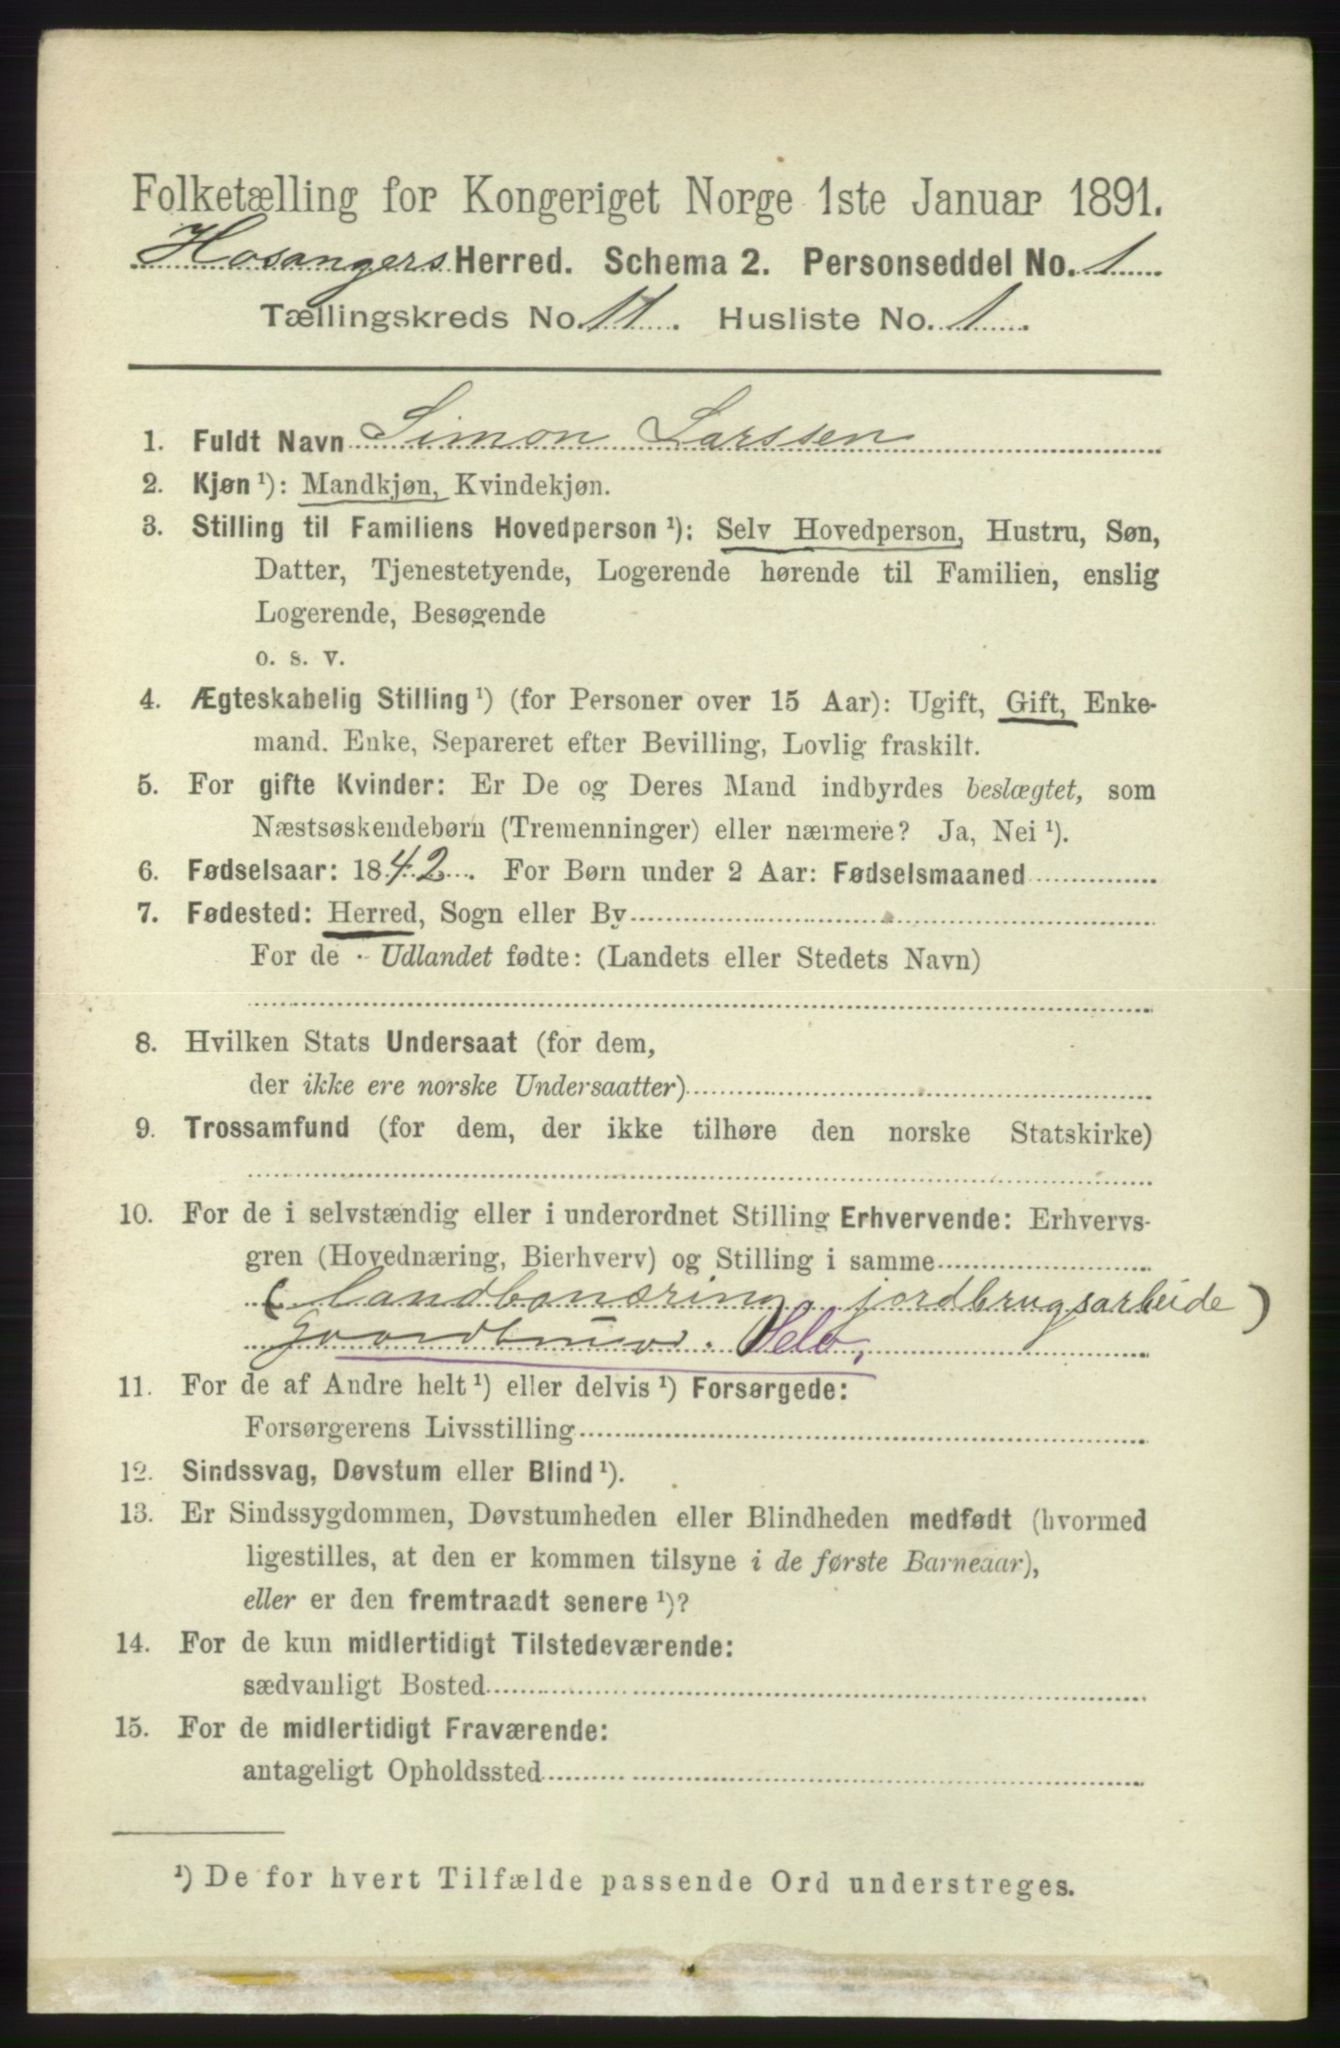 Folketælling for Kongeriget Norge 1ste Januar 1891.
Hosangers Herred. Schema 2. Personseddel No. 1
Tællingskreds No. 11. Husliste No. 1
1. Fuldt Navn Simon Larssen
2. Kjøn ¹): Mandkjøn, Kvindekjøn.
3. Stilling til Familiens Hovedperson ¹): Selv Hovedperson, Hustru, Søn,
Datter, Tjenestetyende, Logerende hørende til Familien, enslig
Logerende, Besøgende
o. s. v.
4. Ægteskabelig Stilling ¹) (for Personer over 15 Aar): Ugift, Gift, Enke-
mand. Enke, Separeret efter Bevilling, Lovlig fraskilt.
5. For gifte Kvinder: Er De og Deres Mand indbyrdes beslægtet, som
Næstsøskendebørn (Tremenninger) eller nærmere? Ja, Nei ¹).
6. Fødselsaar: 1842. For Børn under 2 Aar: Fødselsmaaned
7. Fødested: Herred, Sogn eller By
For de Udlandet fødte: (Landets eller Stedets Navn)
8. Hvilken Stats Undersaat (for dem,
der ikke ere norske Undersaatter)
9. Trossamfund (for dem, der ikke tilhøre den norske Statskirke)
10. For de i selvstændig eller i underordnet Stilling Erhvervende: Erhvervs-
gren (Hovednæring, Bierhverv) og Stilling i samme
(Landbonæring, jordbrugsarbeide)
Gaardbruger. Selv,
11. For de af Andre helt ¹) eller delvis ¹) Forsørgede:
Forsørgerens Livsstilling
12. Sindssvag, Døvstum eller Blind ¹).
13. Er Sindssygdommen, Døvstumheden eller Blindheden medfødt (hvormed
ligestilles, at den er kommen tilsyne i de første Barneaar),
eller er den fremtraadt senere ¹)?
14. For de kun midlertidigt Tilstedeværende:
sædvanligt Bosted
15. For de midlertidigt Fraværende:
antageligt Opholdssted
¹) De for hvert Tilfælde passende Ord understreges.